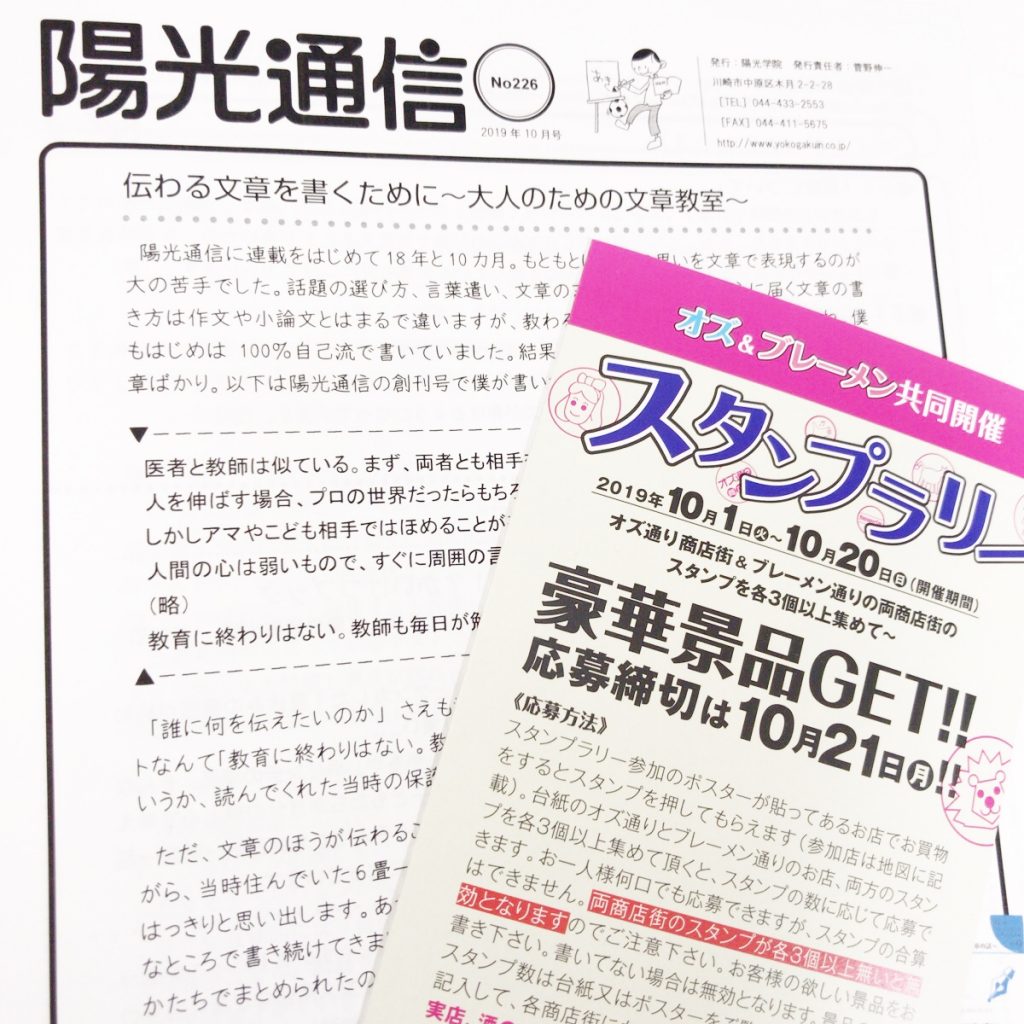 陽光通信
No226
2019年10月号
あき
発行：陽光学院　発行責任者：菅野伸一
川崎市中原区木月2-2-28
［TEL］044-433-2553
［FAX］044-411-5675
http://www.yokogakuin.co.jp/
伝わる文章を書くために～大人のための文章教室～
陽光通信に連載をはじめて18年と10カ月。もともと
思いを文章で表現するのが
大の苦手でした。話題の選び方、言葉遣い、文章の
に届く文章の書
き方は作文や小論文とはまるで違いますが、教わ
僕
もはじめは 100％自己流で書いていました。結果
章ばかり。以下は陽光通信の創刊号で僕が書い
▼
医者と教師は似ている。まず、両者とも相手
人を伸ばす場合、プロの世界だったらもちろ
しかしアマやこども相手ではほめることが
人間の心は弱いもので、すぐに周囲の言
（略）
教育に終わりはない。教師も毎日が勉
▲
「誰に何を伝えたいのか」さえも
トなんて「教育に終わりはない。教
いうか、読んでくれた当時の保護
ただ、文章のほうが伝わるこ
がら、当時住んでいた6畳一
はっきりと思い出します。あ
なところで書き続けてきま
かたちでまとめられたの
オズ＆ブレーメン共同開催
スタンプラリー
2019年10月1日㊋～10月20日㊐（開催期間）
オズ通り商店街＆ブレーメン通りの両商店街の
スタンプを各3個以上集めて～
豪華景品GET!!
応募締切は10月21日㊊!!
《応募方法》
スタンプラリー参加のポスターが貼ってあるお店でお買物
をするとスタンプを押してもらえます（参加店は地図に記
載）。台紙のオズ通りとブレーメン通りのお店、両方のスタン
プを各3個以上集めて頂くと、スタンプの数に応じて応募で
きます。お一人様何口でも応募できますが、スタンプの合算
はできません。両商店街のスタンプが各3個以上無いと無
効となりますのでご注意下さい。お客様の欲しい景品をお
書き下さい。書いてない場合は無効となります。景品
スタンプ数は台紙又はポスターをご
記入して、各商店街に